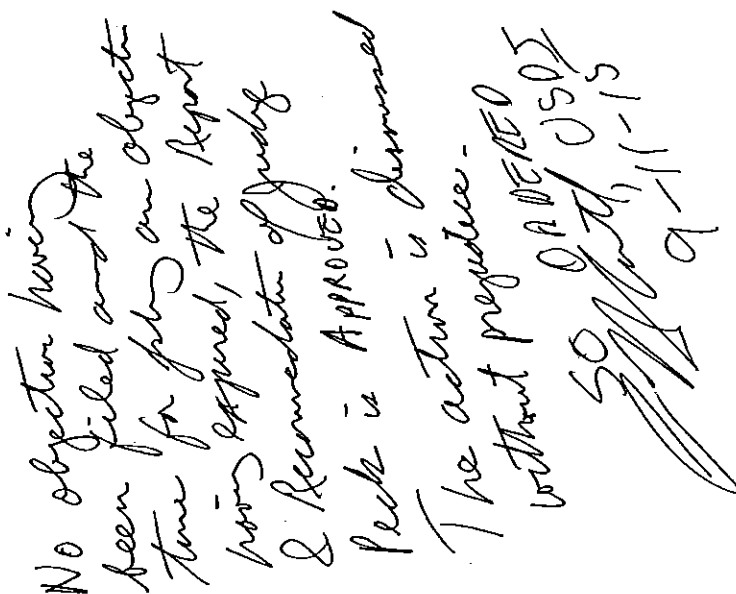 No objection having
been filed and the
time for filing an objection
having expired, the Report
& Recommendation of Judge
Peck is APPROVED.
The action is dismissed
without prejudice.
SO ORDERED
USDJ
9-11-15